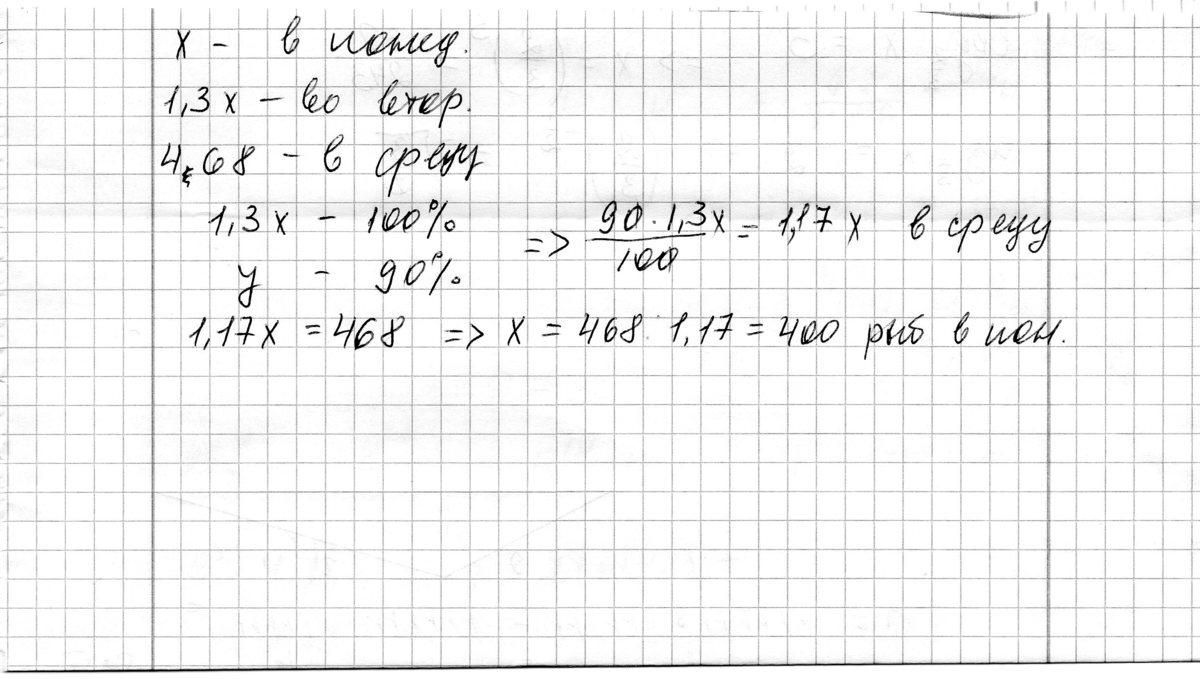 x - в понед.
1,3x - во втор.
4 68 - в среду
1,3x - 100%
y - 90%
=> 90 · 1,3x / 100 = 1,17x в среду
1,17x = 468 => x = 468 : 1,17 = 400 рыб в пон.